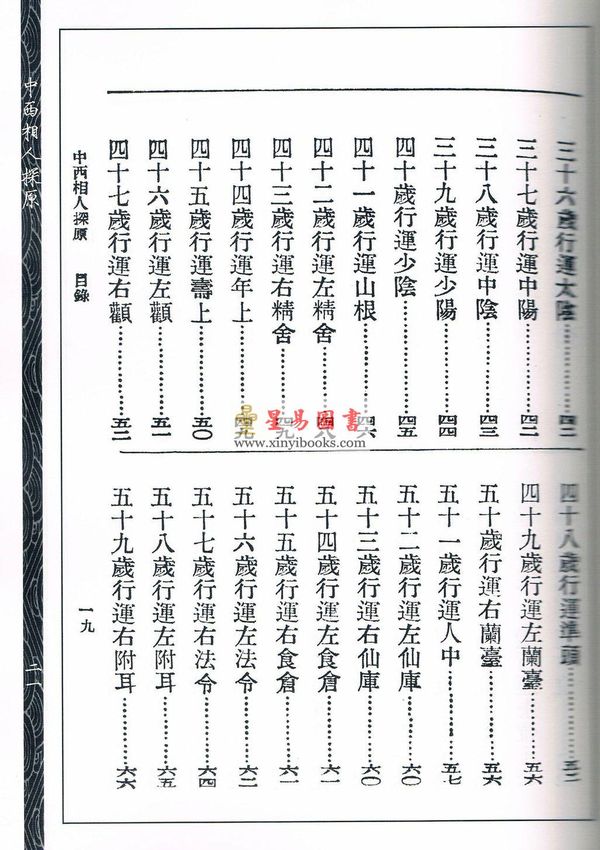 三十六歲行運太陰……………四二
三十七歲行運中陽……………四二
三十八歲行運中陰……………四三
三十九歲行運少陽……………四四
四十歲行運少陰……………四五
四十一歲行運山根……………四六
四十二歲行運左精舍……………四八
四十三歲行運右精舍……………四九
四十四歲行運年上……………四九
四十五歲行運壽上……………五〇
四十六歲行運左顴……………五一
四十七歲行運右顴……………五二
四十八歲行運準頭……………五三
四十九歲行運左蘭臺……………五六
五十歲行運右蘭臺……………五六
五十一歲行運人中……………五七
五十二歲行運左仙庫……………六〇
五十三歲行運右仙庫……………六〇
五十四歲行運左食倉……………六一
五十五歲行運右食倉……………六一
五十六歲行運左法令……………六二
五十七歲行運右法令……………六四
五十八歲行運左附耳……………六五
五十九歲行運右附耳……………六六
中西相人探原 目錄
一九
中西相人探原
二一
星易圖書
www.xinyibooks.com